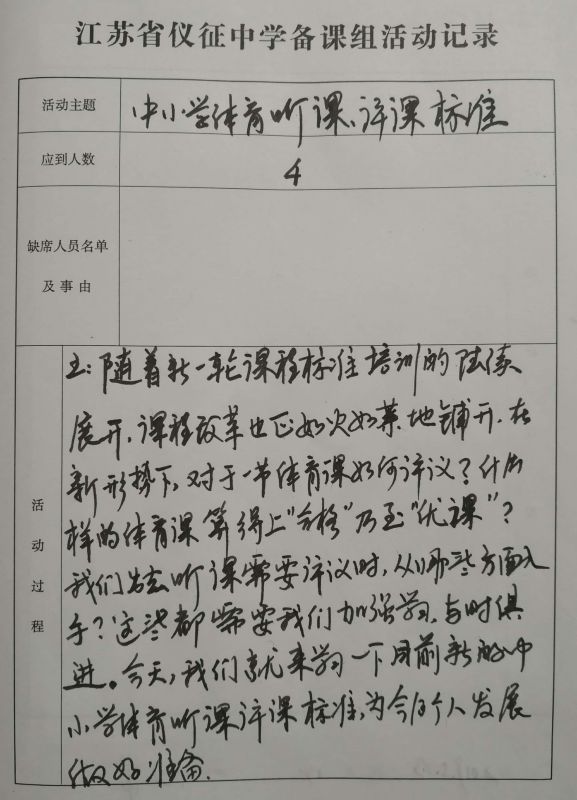 江苏省仪征中学备课组活动记录
活动主题
中小学体育听课、评课标准
应到人数
4
缺席人员名单
及事由
活动过程
主:随着新一轮课程标准培训的陆续
展开,课程改革也正如火如荼地铺开.在
新形势下,对于一节体育课如何评议?什么
样的体育课算得上"合格"乃至"优课"?
我们去听课需要评议时,从哪些方面入
手?这些都需要我们加强学习,与时俱
进。今天,我们就来学习一下目前新的中
小学体育听课评课标准,为今后个人发展
做好准备.